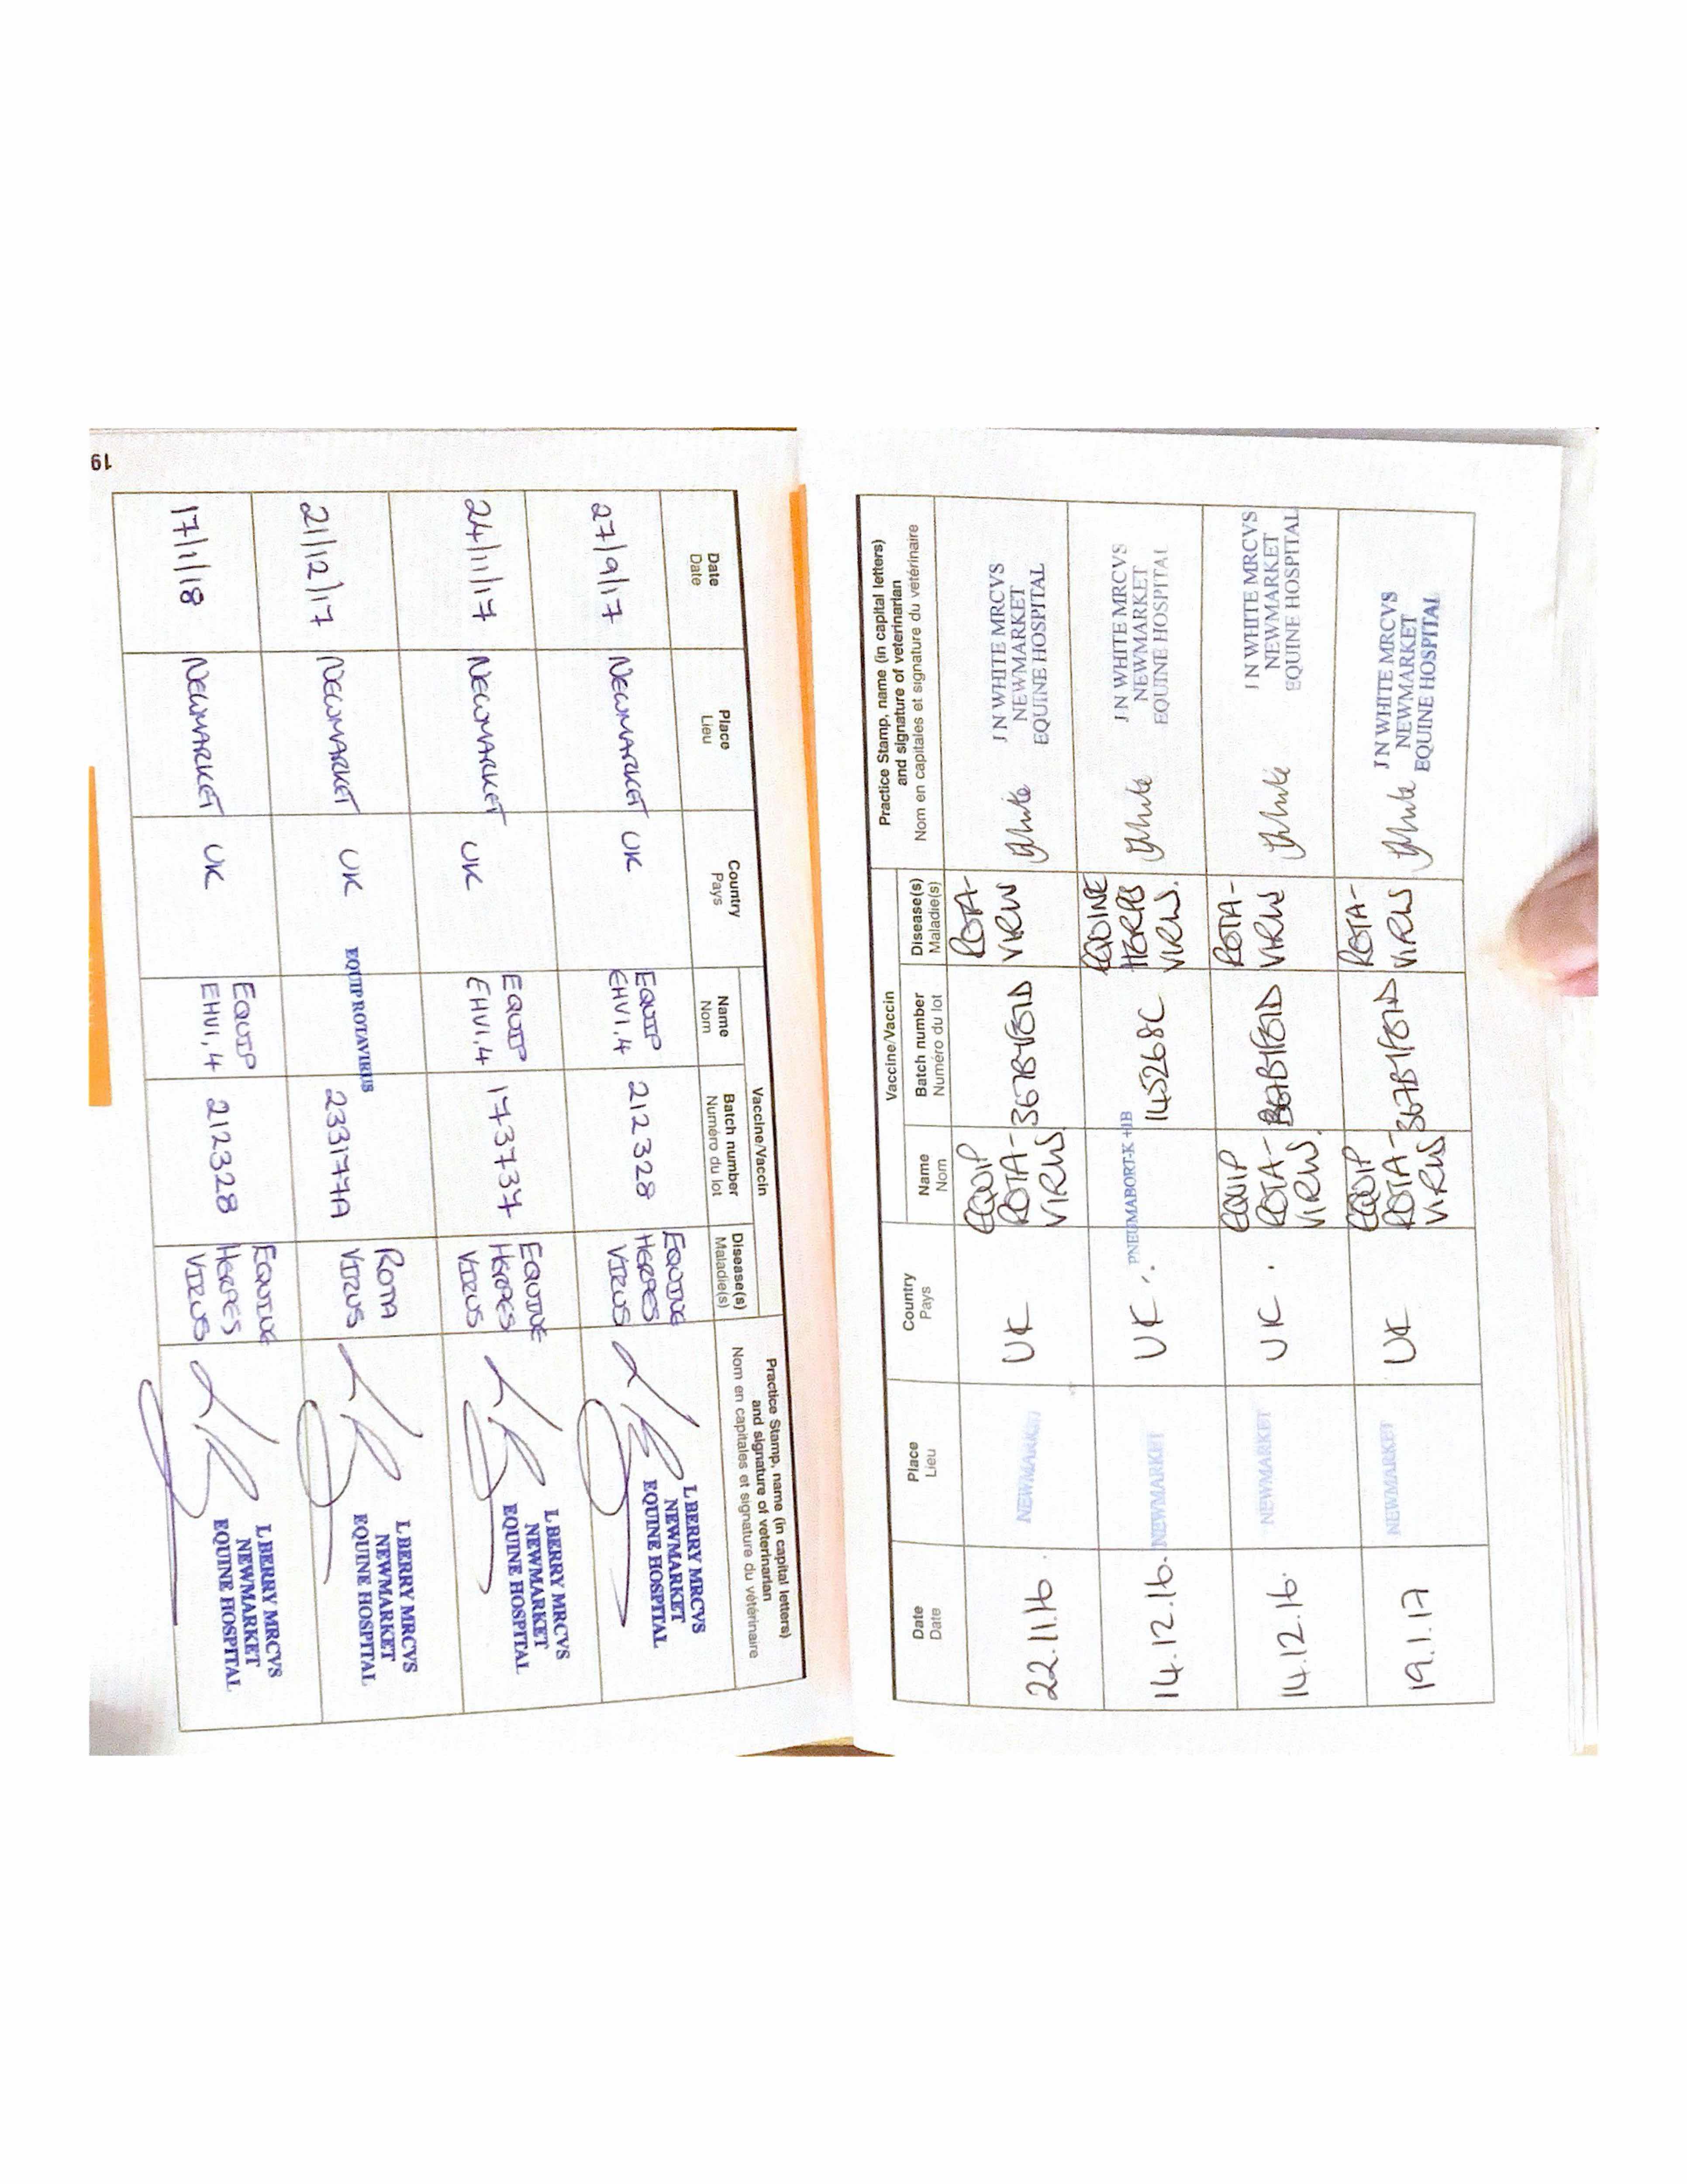 Date
Date
Place
Lieu
Country
Pays
Vaccine/Vaccin
Name
Nom
Batch number
Numéro du lot
Disease(s)
Maladie(s)
Practice Stamp, name (in capital letters)
and signature of veterinarian
Nom en capitales et signature du vétérinaire
22.11.16.
NEWMARKET
UK
EQUIP
ROTA-
VIRUS
367B4FB1D
ROTA-
VIRUS
JWhite
J N WHITE MRCVS
NEWMARKET
EQUINE HOSPITAL
14.12.16.
NEWMARKET
UK
PNEUMABORT-K +1B
145268C
EQUINE
HERPES
VIRUS.
JWhite
J N WHITE MRCVS
NEWMARKET
EQUINE HOSPITAL
14.12.16.
NEWMARKET
UK.
EQUIP
ROTA-
VIRUS.
ROTA-
VIRUS
JWhite
J N WHITE MRCVS
NEWMARKET
EQUINE HOSPITAL
19.1.17
NEWMARKET
UK
EQUIP
ROTA-
VIRUS
367B4FB1D
ROTA-
VIRUS
JWhite
J N WHITE MRCVS
NEWMARKET
EQUINE HOSPITAL
Date
Date
Place
Lieu
Country
Pays
Vaccine/Vaccin
Name
Nom
Batch number
Numéro du lot
Disease(s)
Maladie(s)
Practice Stamp, name (in capital letters)
and signature of veterinarian
Nom en capitales et signature du vétérinaire
27/9/17
NEWMARKET
UK
EQUIP
EHV1,4
212328
EQUINE
HERPES
VIRUS
L BERRY MRCVS
NEWMARKET
EQUINE HOSPITAL
24/11/17
NEWMARKET
UK
EQUIP
EHV1,4
173737
EQUINE
HERPES
VIRUS
L BERRY MRCVS
NEWMARKET
EQUINE HOSPITAL
21/12/17
NEWMARKET
UK
EQUIP ROTAVIRUS
233177A
ROTA
VIRUS
L BERRY MRCVS
NEWMARKET
EQUINE HOSPITAL
17/1/18
NEWMARKET
UK
EQUIP
EHV1,4
212328
EQUINE
HERPES
VIRUS
L BERRY MRCVS
NEWMARKET
EQUINE HOSPITAL
19